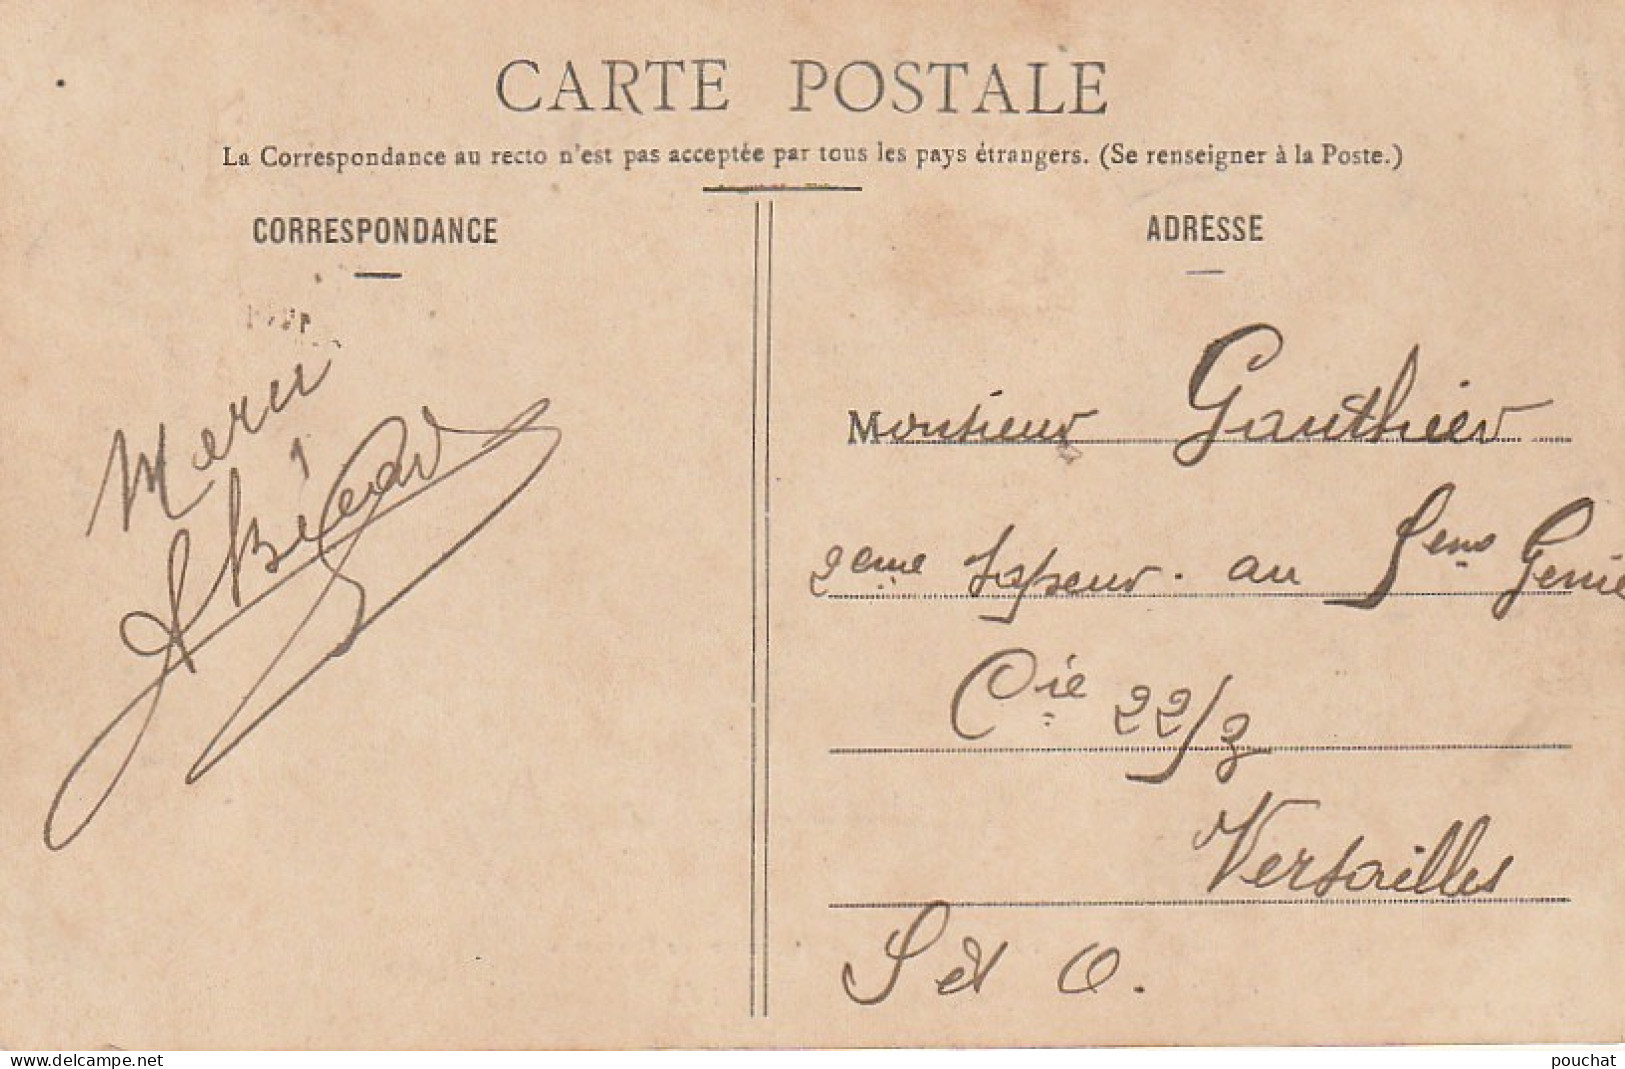 CARTE POSTALE
La Correspondance au recto n'est pas acceptée par tous les pays étrangers. (Se renseigner à la Poste.)
CORRESPONDANCE
ADRESSE
Merci
Monsieur Gauthier
2eme Sapeur. au 5eme Genie
Cie 22/3
Versailles
S et O.
www.delcampe.net
pouchat